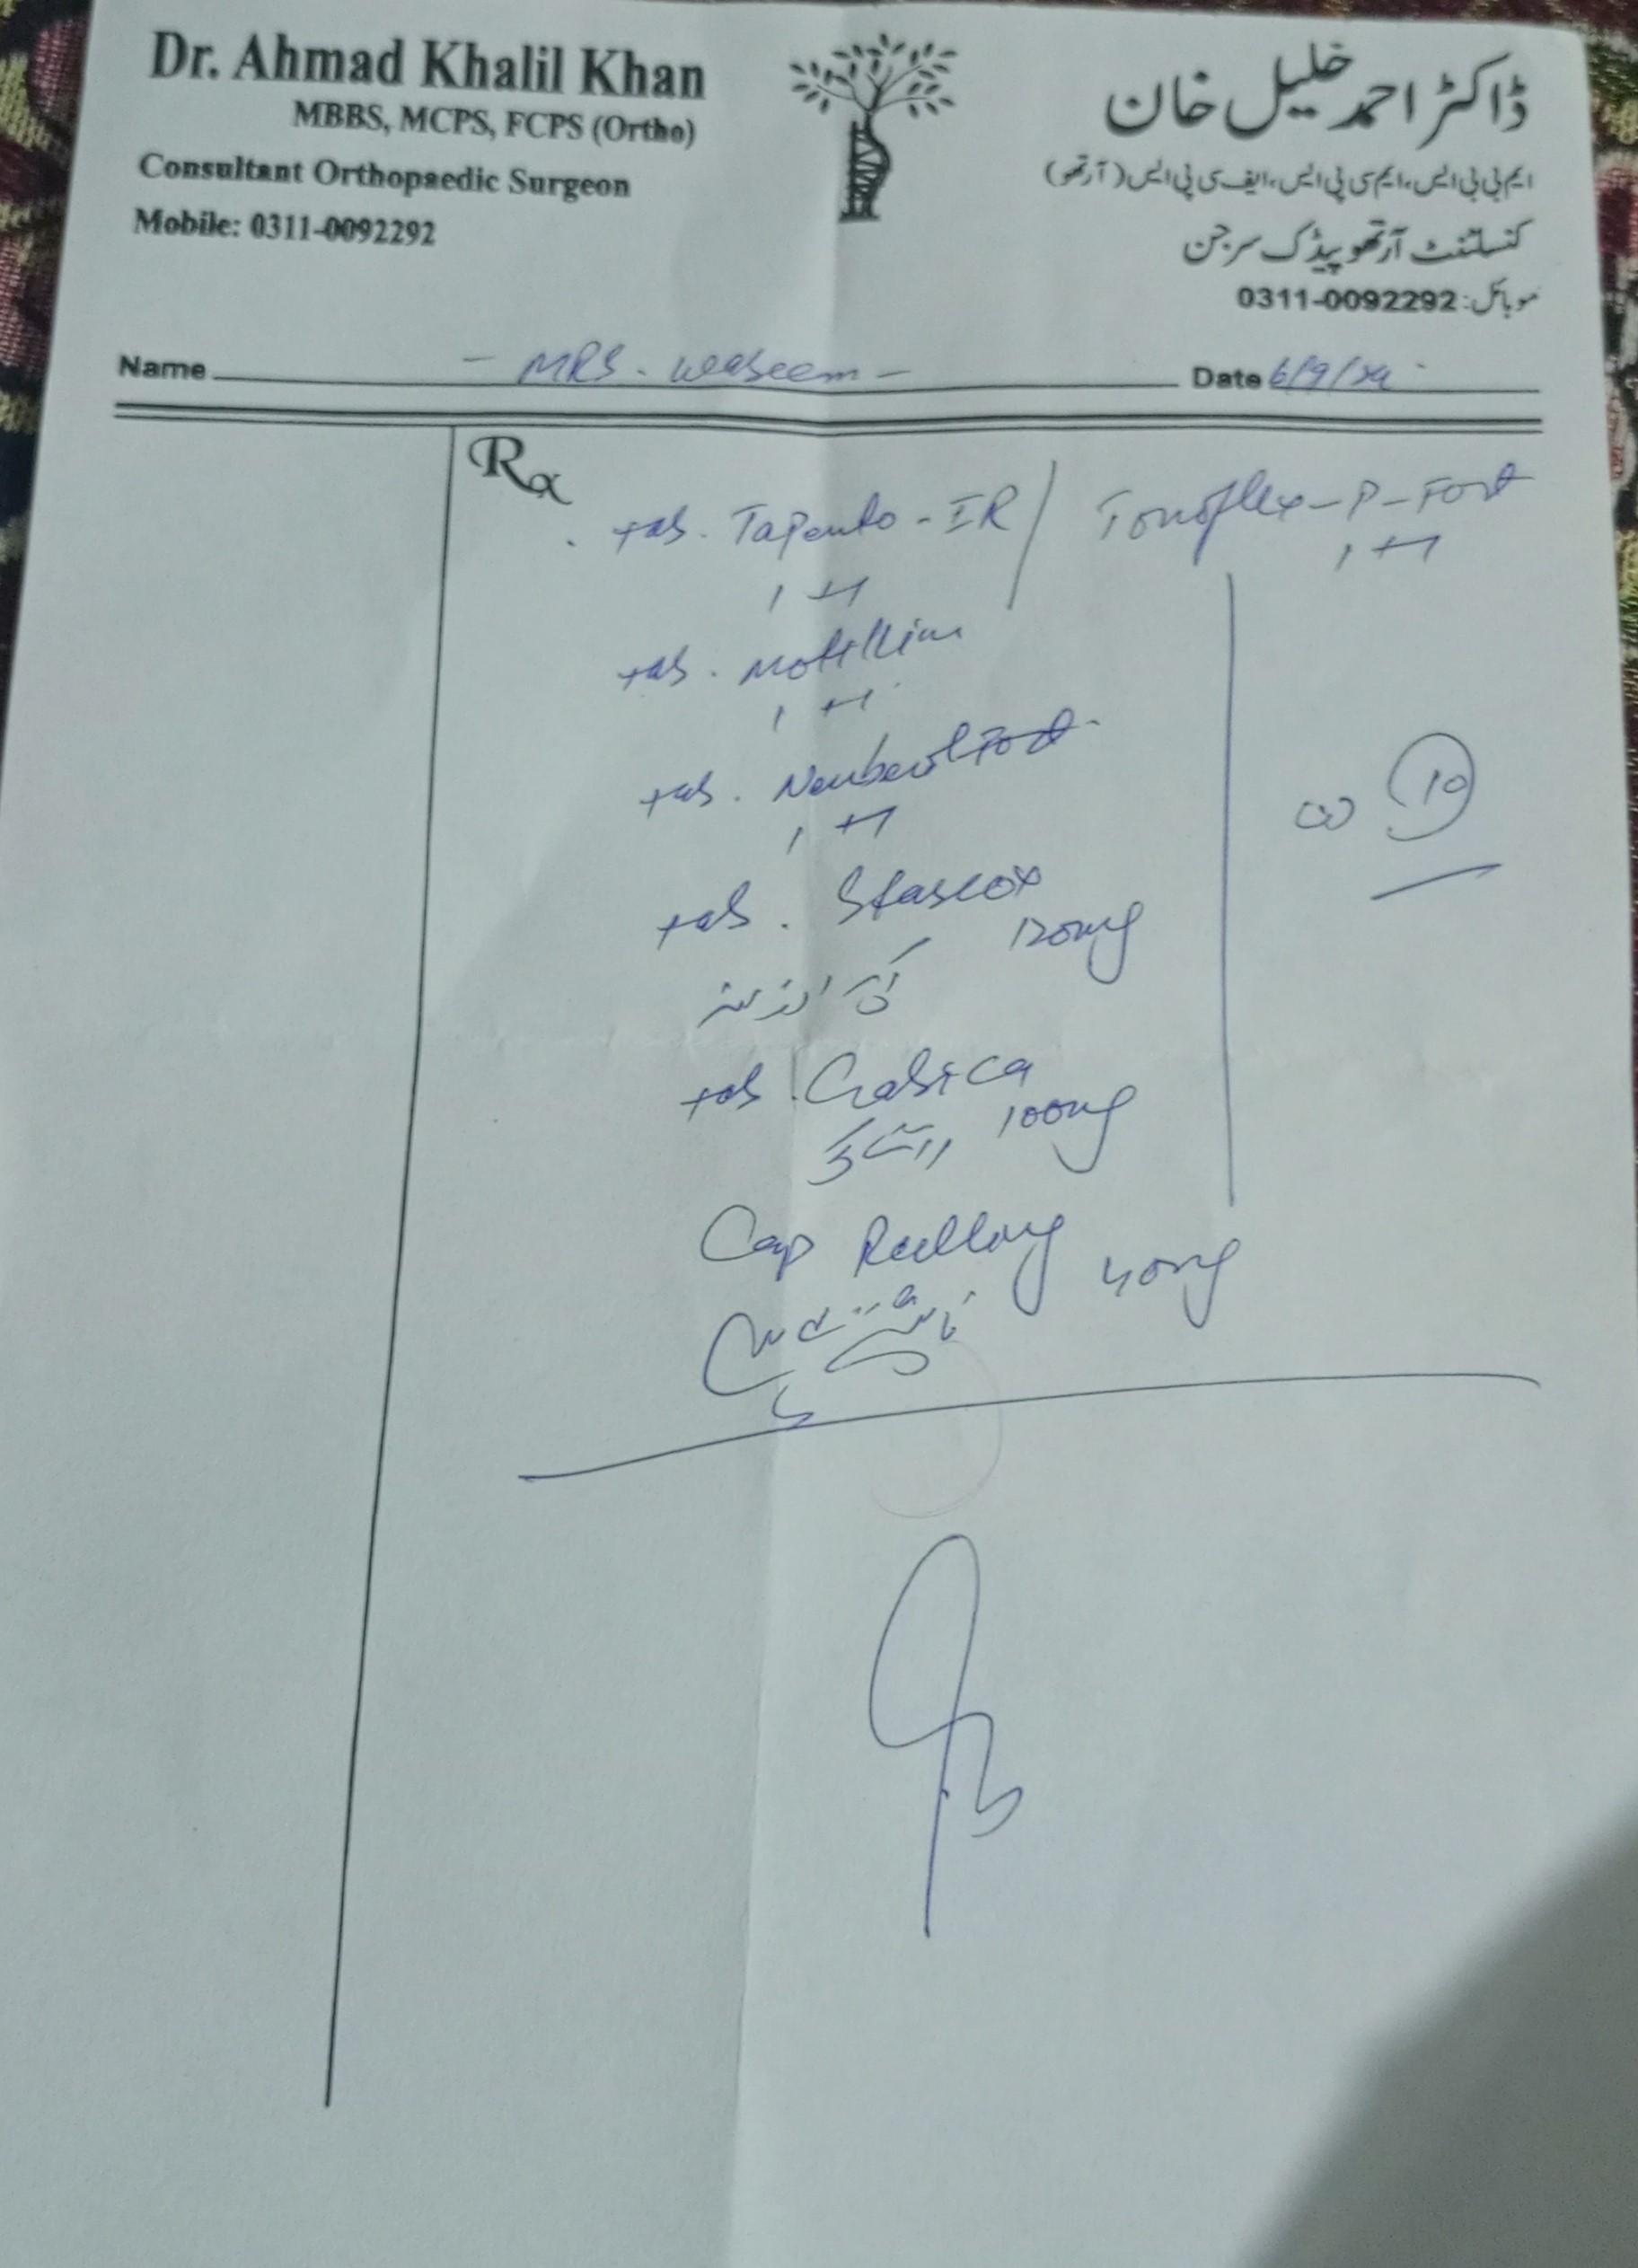 Dr. Ahmad Khalil Khan
MBBS, MCPS, FCPS (Ortho)
Consultant Orthopaedic Surgeon
Mobile: 0311-0092292
ڈاکٹر احمد خلیل خان
ایم بی بی ایس، ایم سی پی ایس، ایف سی پی ایس (آرتھو)
کنسلٹنٹ آرتھوپیڈک سرجن
موبائل: 0311-0092292
Name - MRS. Waseem - Date 6/9/24
Rx
tab. Tapento-IR / Tonoflex-P-Fort
1+1 1+1
tab. Motilium
1+1
tab. Neuberol Fort
1+1
tab. Starcox
120mg
tab. Gabica
100mg
Cap
40mg
10